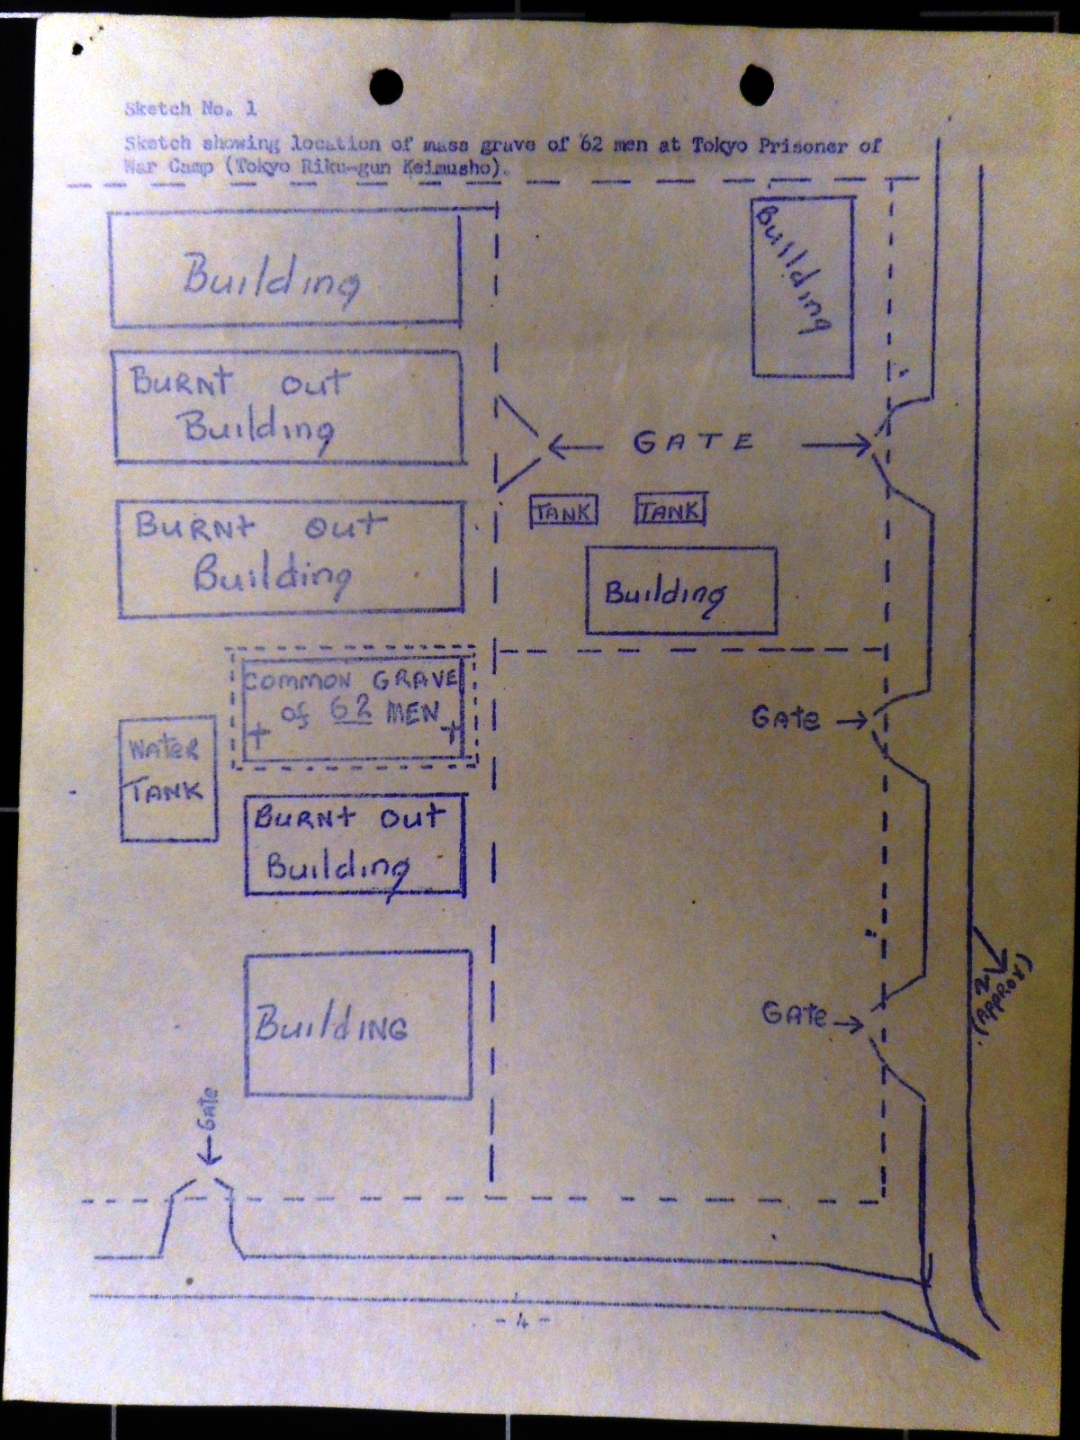 Sketch No. 1
Sketch showing location of mass grave of 62 men at Tokyo Prisoner of
War Camp (Tokyo Riku-gun Keimusho).
Building
Building
Burnt out
Building
← GATE →
Burnt out
Building
TANK
TANK
Building
COMMON GRAVE
of 62 MEN
Gate →
WATER
TANK
Burnt out
Building
Building
Gate →
(APPROX)
← Gate
- 4 -